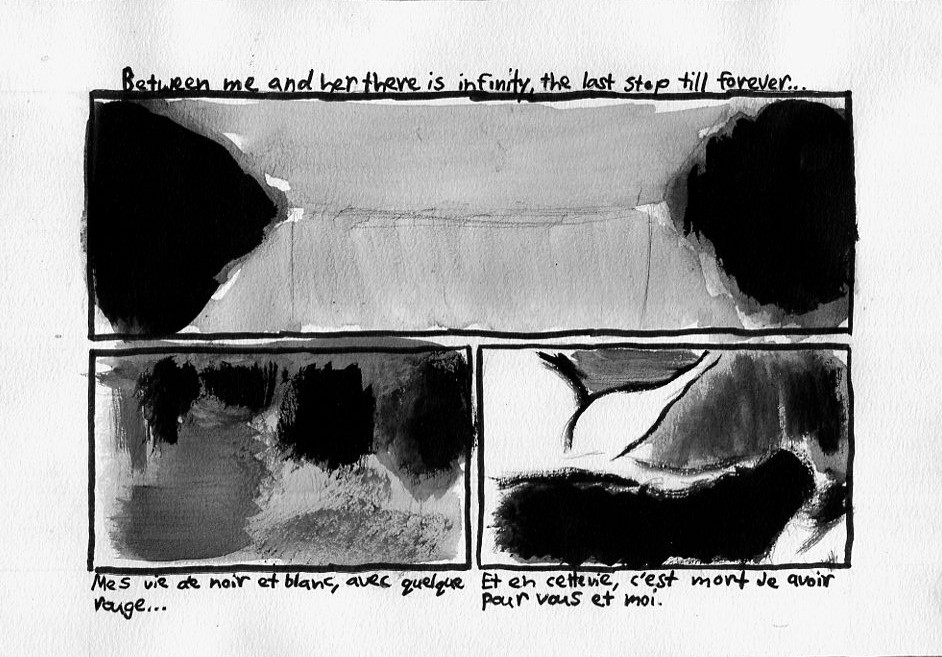 Between me and her there is infinity, the last step till forever...
Mes vie de noir et blanc, avec quelque
rouge...
Et en cette vie, c'est mort de avoir
pour vous et moi.